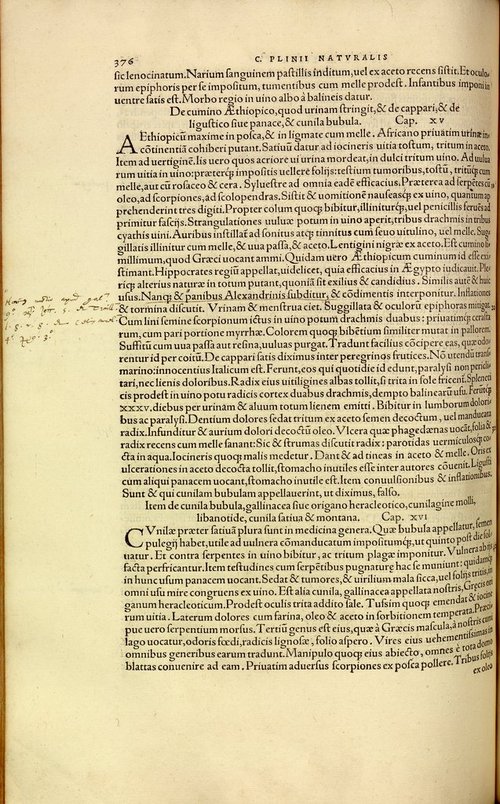 376
C. PLINII NATVRALIS
sic lenocinatum. Narium sanguinem pastillis inditum, uel ex aceto recens sistit. Et oculo⸗
rum epiphoris per se impositum, tumentibus cum melle prodest. Infantibus imponi in
uentre satis est. Morbo regio in uino albo à balineis datur.
De cumino Æthiopico, quod urinam stringit, & de cappari, & de
ligustico siue panace, & cunila bubula. Cap. xv
AEthiopicū maxime in posca, & in ligmate cum melle. Africano priuatim urinæ in⸗
cōtinentiā cohiberi putant. Satiuū datur ad iocineris uitia tostum, tritum in aceto.
Item ad uertiginē. Iis uero quos acriore ui urina mordeat, in dulci tritum uino. Ad uuluæ
rum uitia in uino: præterq̃ impositis uellere folijs: testium tumoribus, tostū, tritūq̃ cum
melle, aut cū rosaceo & cera. Syluestre ad omnia eadē efficacius. Præterea ad serpētes cū
oleo, ad scorpiones, ad scolopendras. Sistit & uomitionē nauseasq̃ ex uino, quantum ap
prehenderint tres digiti. Propter colum quoq̃ bibitur, illiniturq̃, uel penicillis feruēs ad
primitur fascijs. Strangulationes uuluæ potum in uino aperit, tribus drachmis in tribus
cyathis uini. Auribus instillāt ad sonitus atq̃ tinnitus cum seuo uitulino, uel melle. Sug
gillatis illinitur cum melle, & uua passa, & aceto. Lentigini nigræ ex aceto. Est cumino
millimum, quod Græci uocant ammi. Quidam uero Æthiopicum cuminum id esse exi⸗
stimant. Hippocrates regiū appellat, uidelicet, quia efficacius in Ægypto iudicauit. Ple⸗
riq̃ alterius naturæ in totum putant, quoniā sit exilius & candidius. Similis autē & huic
usus. Nanq̃ & panibus Alexandrinis subditur, & cōdimentis interponitur. Inflationes
& tormina discutit. Vrinam & menstrua ciet. Suggillata & oculorū epiphoras mitigat.
Cum lini semine scorpionum ictus in uino potum drachmis duabus: priuatimq̃
rum, cum pari portione myrrhæ. Colorem quoq̃ bibētium similiter mutat in pallorem.
Suffitū cum uua passa aut resina, uuluas purgat. Tradunt facilius cōcipere eas, quæ
rentur id per coitū. De cappari satis diximus inter peregrinos frutices. Nō utendū
marino: innocentius Italicum est. Ferunt, eos qui quotidie id edunt, paralysi non
tari, nec lienis doloribus. Radix eius uitiligines albas tollit, si trita in sole fricent. Splenei
cis prodest in uino potu radicis cortex duabus drachmis, dempto balinearū usu. Ferūtq̃
xxxv. diebus per urinam & aluum totum lienem emitti. Bibitur in lumborum dolori⸗
bus ac paralysi. Dentium dolores sedat tritum ex aceto semen decoctum, uel manducata
radix. Infunditur & aurium dolori decoctū oleo. Vlcera quæ phagedænas uocāt, folia &
radix recens cum melle sanant: Sic & strumas discutit radix: parotidas uermiculosq̃
cta in aqua. Iocineris quoq̃ malis medetur. Dant & ad tineas in aceto & melle. Oris ex
ulcerationes in aceto decocta tollit, stomacho inutiles esse inter autores cōuenit. Ligustī
cum aliqui panacem uocant, stomacho inutile est. Item conuulsionibus & inflationibus.
Sunt & qui cunilam bubulam appellauerint, ut diximus, falso.
Item de cunila bubula, gallinacea siue origano heracleotico, cunilagine molli,
libanotide, cunila satiua & montana. Cap. xvi
CVnilæ præter satiuā plura sunt in medicina genera. Quæ bubula appellatur, semen
pulegij habet, utile ad uulnera cōmanducatum impositumq̃, ut quinto post die sol⸗
uatur. Et contra serpentes in uino bibitur, ac tritum plagæ imponitur. Vulnera ab ijs
facta perfricantur. Item testudines cum serpētibus pugnaturæ hac se muniunt: quidamq̃
in hunc usum panacem uocant. Sedat & tumores, & uirilium mala sicca, uel folijs tritis,
omni usu mire congruens ex uino. Est alia cunila, gallinacea appellata nostris, Græcis ori
ganum heracleoticum. Prodest oculis trita addito sale. Tussim quoq̃ emendat & iocine
rum uitia. Laterum dolores cum farina, oleo & aceto in sorbitionem temperata. Præcipue
pue uero serpentium morsus. Tertiū genus est eius, quæ à Græcis mascula, à nostris cuni
lago uocatur, odoris fœdi, radicis lignosæ, folio aspero. Vires eius uehementissimas in
omnibus generibus earum tradunt. Manipulo quoq̃ eius abiecto, omnes è tota domo
blattas conuenire ad eam. Priuatim aduersus scorpiones ex posca pollere. Tribus folijs
ex oleo